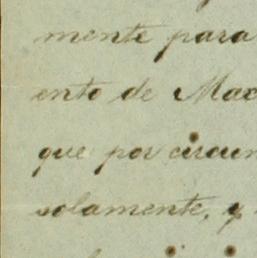 mente para
ento de Max
que por circun
solamente, y